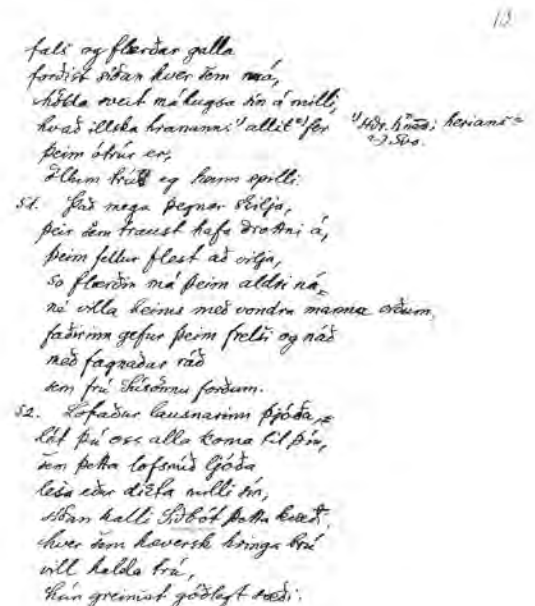 12
fals og flærðar galla
forðist síðan hver sem má,
hölda sveit má hugsa sín á milli,
hvað illska hrananns¹⁾ allit²⁾ fer
¹⁾ Hdr. h með: herians =
²⁾ Svo.
þeim ótrúr er,
öllum trú eg hann spilli.
51. Það mega þegnar skilja,
þeir sem traust hafa drottni á,
þeim fellur flest að vilja,
so flærðin má þeim aldri ná,
né villa heims með vondra manna orðum,
faðirinn gefur þeim frelsi og náð
með fagnaðar ráð
sem frú Súsönnu forðum.
52. Lofaður lausnarinn þjóða,
lát þú oss alla koma til þín,
sem þetta lofsmíð ljóða
lesa eður dikta milli sín,
síðan kalli Siðbót þetta kvæði,
hver sem hæversk hringa brú
vill halda trú,
hún greinist góðlegt sæði.